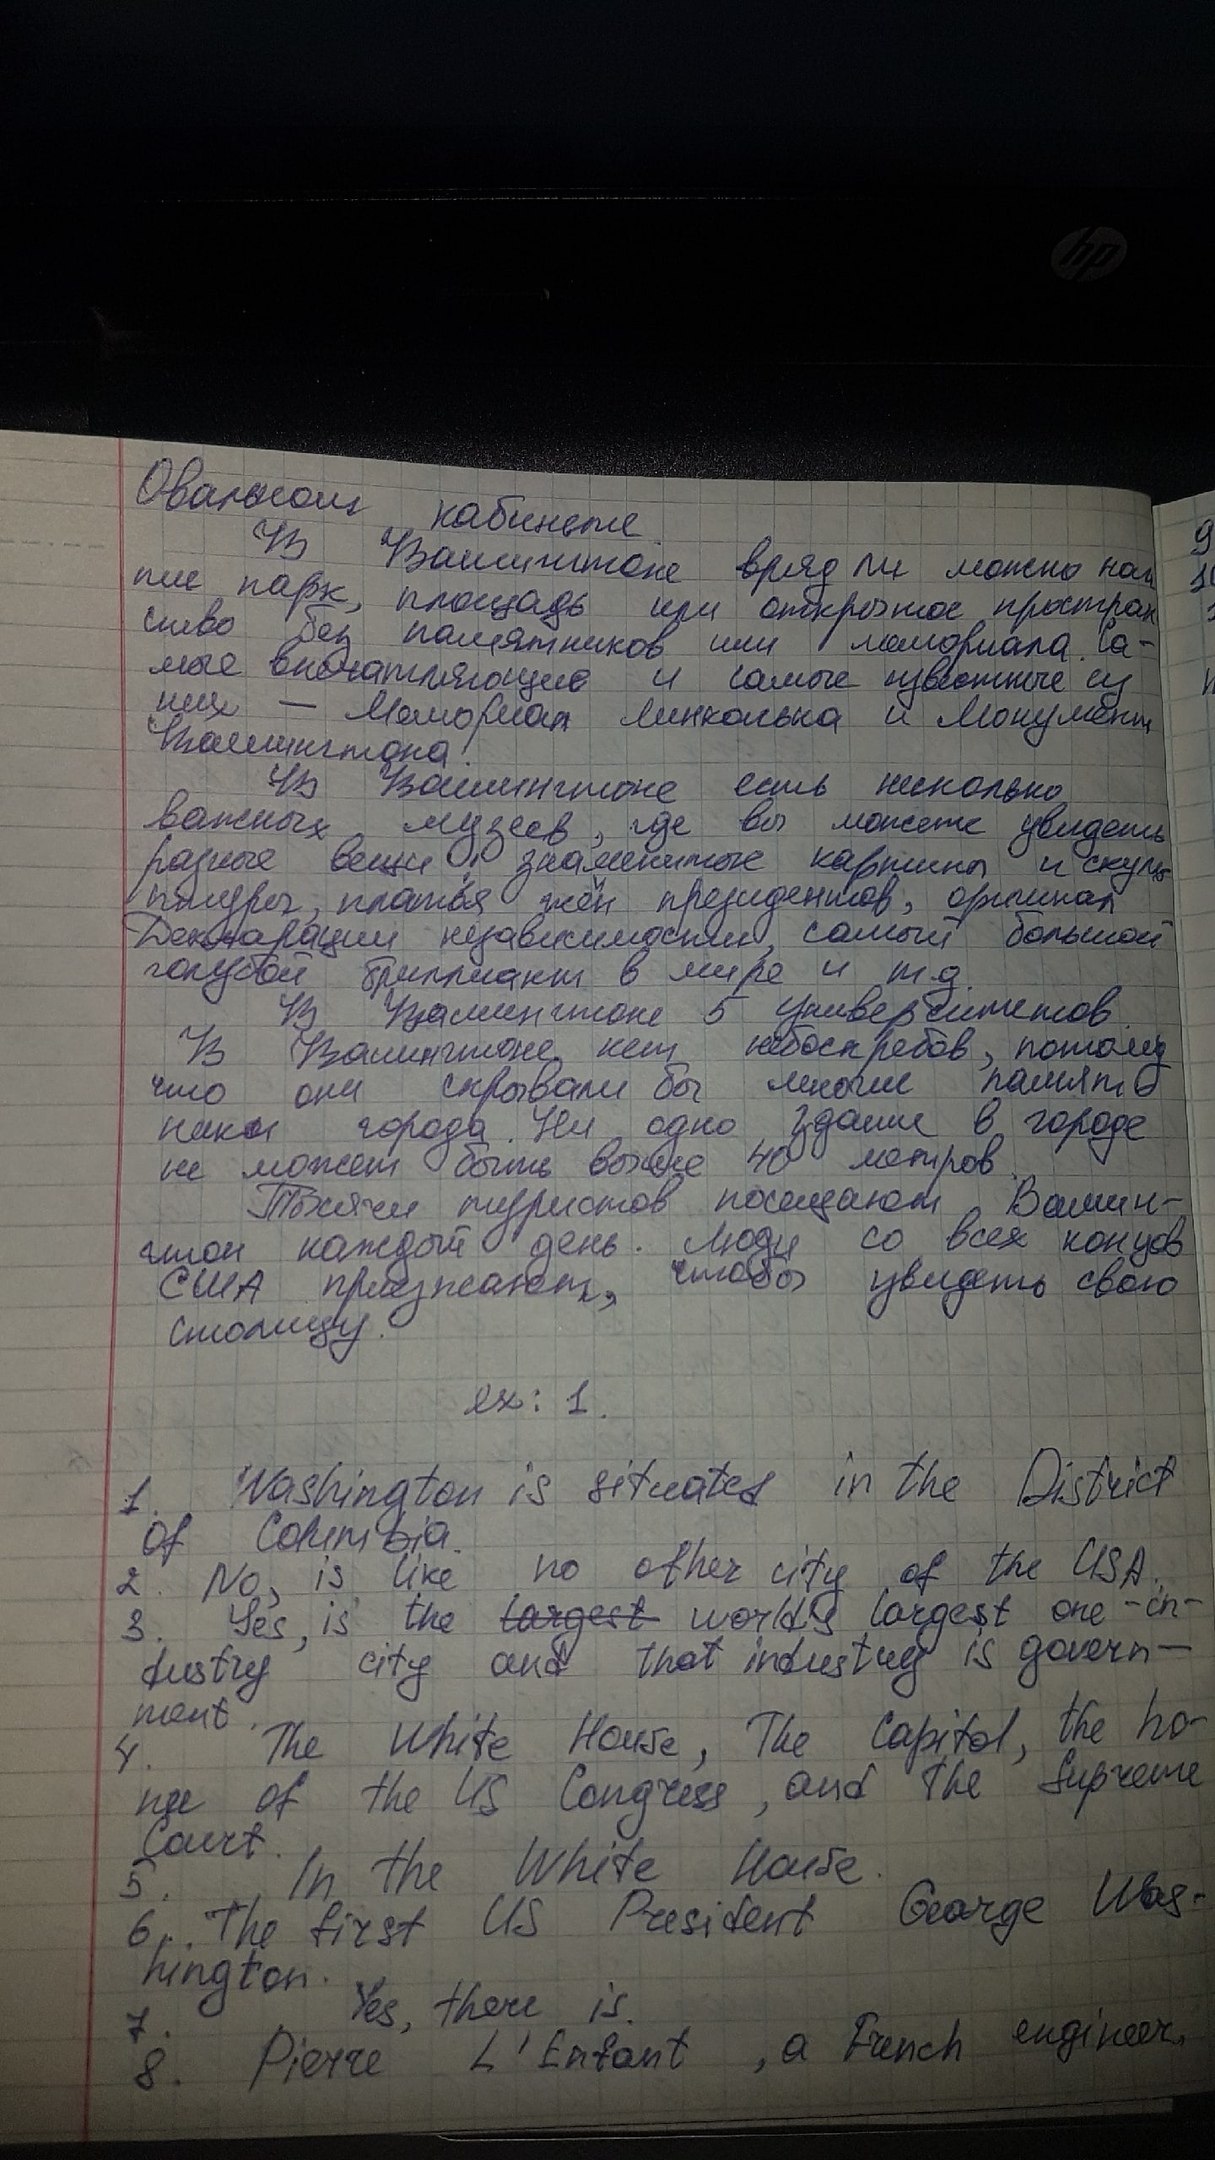 hp
Овальном кабинете.
В Вашингтоне вряд ли можно най
ти парк, площадь или открытое простран
ство без памятников или мемориала. Са-
мые впечатляющие и самые известные из
них — Мемориал Линкольна и Монумент
Вашингтона!
В Вашингтоне есть несколько
важных музеев, где вы можете увидеть
разные вещи: знаменитые картины и скуль
птуры, платья жён президентов, оригинал
Декларации независимости, самый большой
голубой бриллиант в мире и т.д.
В Вашингтоне 5 университетов.
В Вашингтоне нет небоскребов, потому
что они скрывали бы многие памят
ники города. Ни одно здание в городе
не может быть выше 40 метров.
Тысячи туристов посещают Вашин-
гтон каждый день. Люди со всех концов
США приезжают, чтобы увидеть свою
столицу.
ex: 1.
1. Washington is situated in the District
of Columbia.
2. No, is like no other city of the USA.
3. Yes, is the largest world's largest one-in-
dustry city and that industry is govern-
ment.
4. The White House, The Capitol, the ho-
me of the US Congress, and The Supreme
Court.
5. In the White House.
6. The first US President George Was-
hington.
7. Yes, there is.
8. Pierre L'Enfant, a French engineer.
9